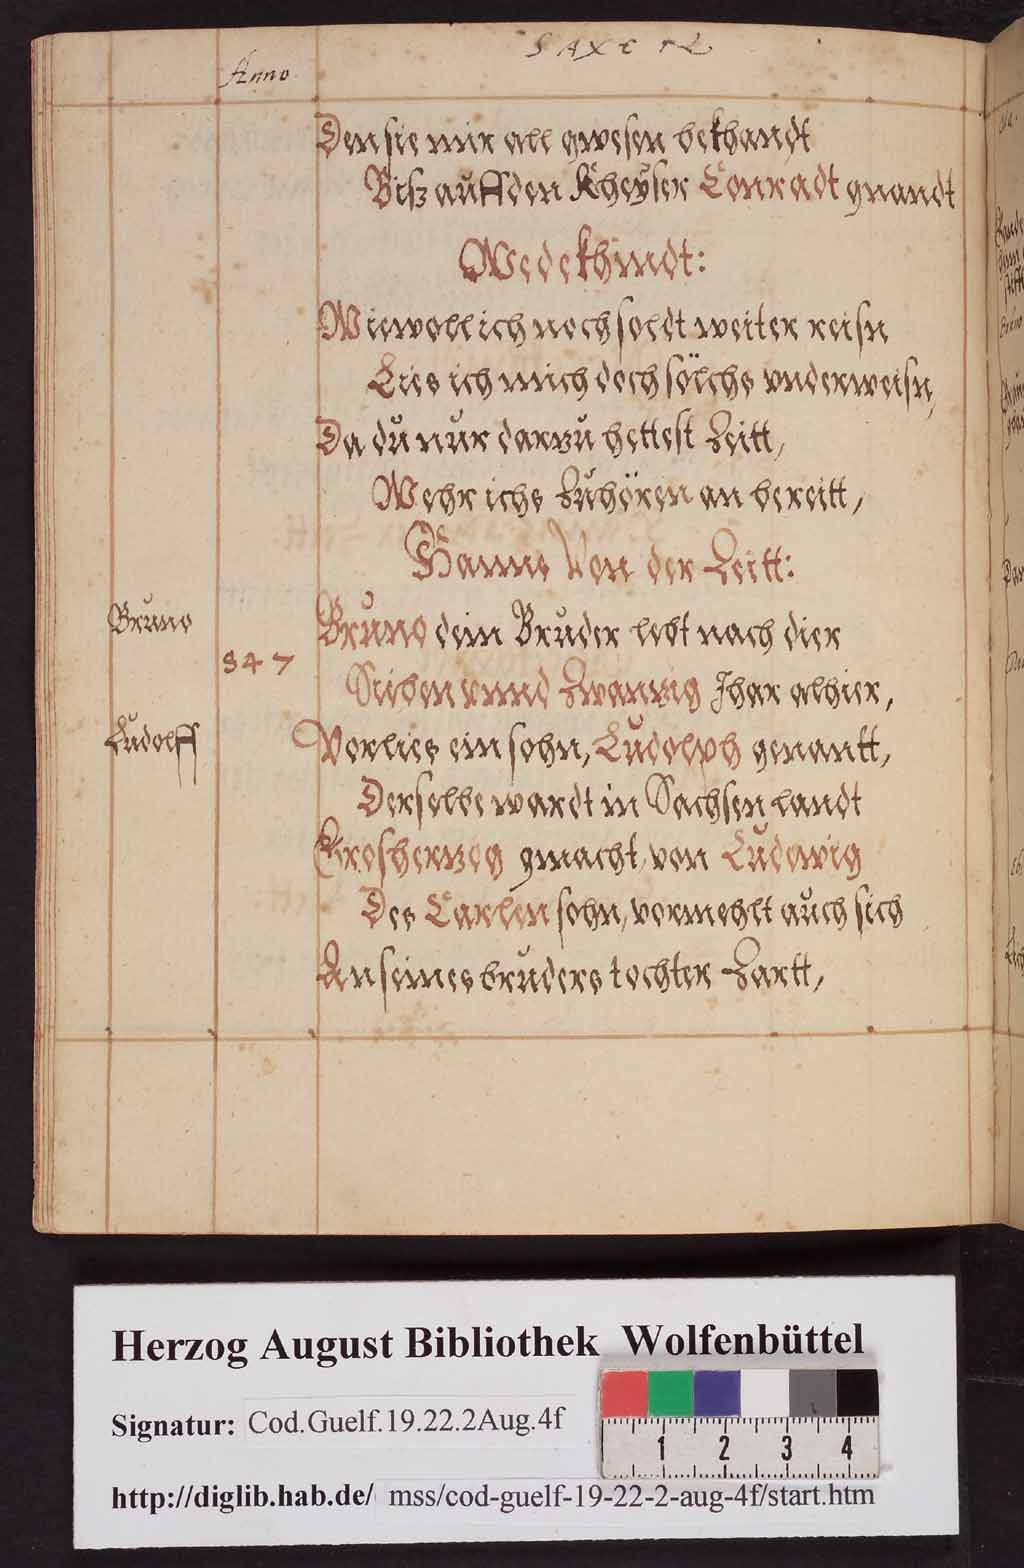 Anno
Den sie mir all gwesen bekhandt
Bisz auff den Kheyser Conradt gnandt
Wedekhindt:
Wiewoll ich noch soldt weiter reisn
Lies ich mich doch sölchs vnderweisn,
Da du nur darzu hettest Zeitt,
Wehr ichs Zuhören an bereitt,
Hanns Von der Zeitt:
Bruno
Bruno dein Bruder lebt nach dier
847
Sieben vnnd Zwanzig Jhar alhier,
Ludolff
Vorlies ein sohn, Ludolph genantt,
Derselbe wardt in Sachsen landt
Grosherzog gmacht, von Ludowig
Des Carlen sohn, vormehlt auch sich
An seines bruders tochter Zartt,
Herzog August Bibliothek Wolfenbüttel
Signatur: Cod.Guelf.19.22.2Aug.4f
1 2 3 4
http://diglib.hab.de/ mss/cod-guelf-19-22-2-aug-4f/start.htm